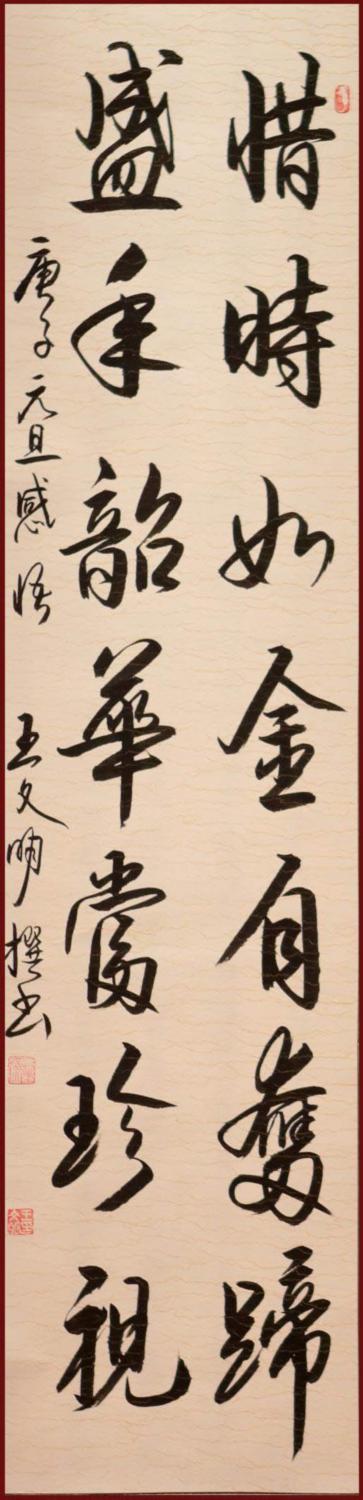 惜時如金自奮蹄
盛年韶華當珍視
庚子元旦感悟 王文明撰书